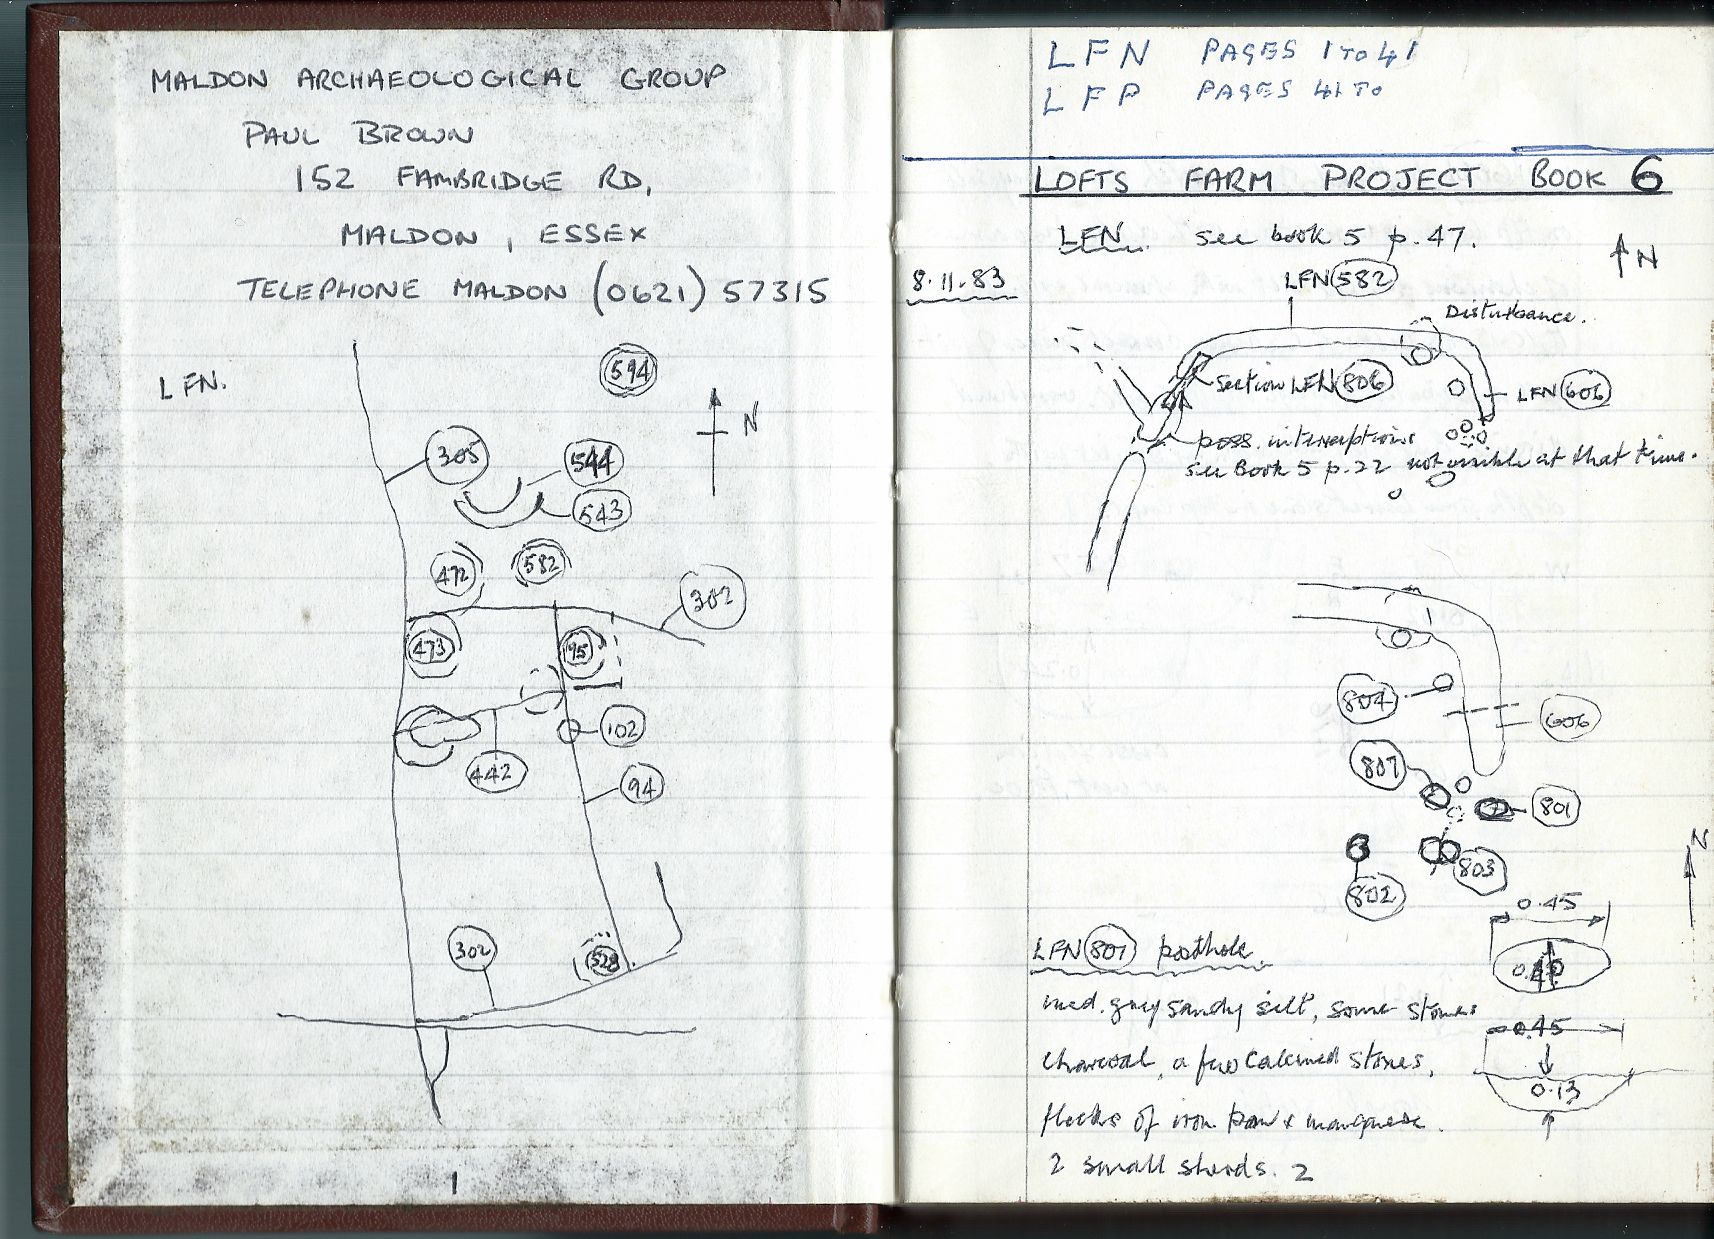 MALDON ARCHAEOLOGICAL GROUP
PAUL BROWN
152 FAMBRIDGE RD,
MALDON, ESSEX
TELEPHONE MALDON (0621) 57315
LFN.
594
N
305
544
543
472
582
302
473
95
102
442
94
302
528
1
LFN PAGES 1 TO 41
LFP PAGES 41 TO
LOFTS FARM PROJECT BOOK 6
LFN. see book 5 p. 47.
N
8.11.83
LFN 582
Disturbance.
section LFN 806
LFN 606
poss. interruptions
see Book 5 p. 22 not visible at that time.
804
606
807
801
803
802
N
0.45
LFN 801 posthole.
med. grey sandy silt, some stones
0.45
charcoal, a few calcined stones,
0.13
flecks of iron pan & manganese.
2 small sherds. 2